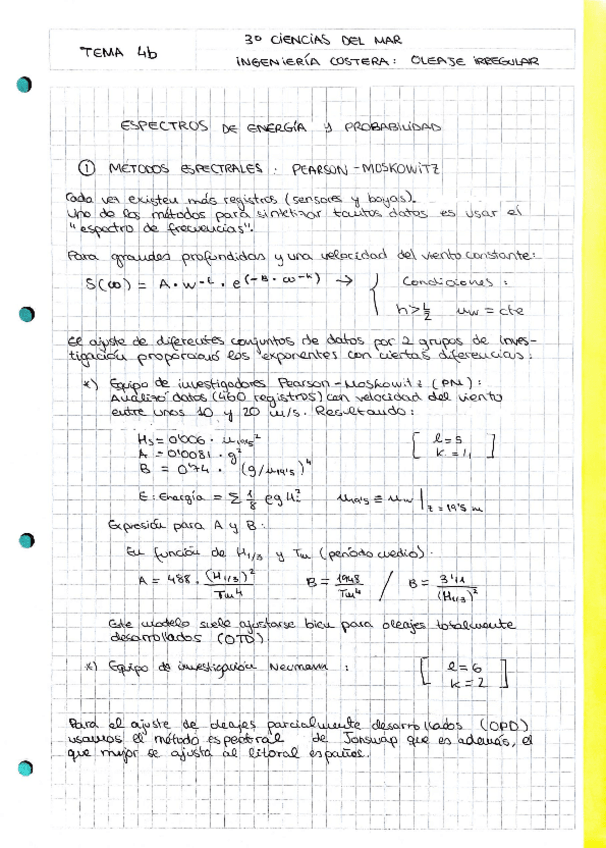 TEMA 4b
3º CIENCIAS DEL MAR
INGENIERÍA COSTERA: OLEAJE IRREGULAR
ESPECTROS DE ENERGÍA Y PROBABILIDAD
① MÉTODOS ESPECTRALES: PEARSON-MOSKOWITZ
Cada vez existen más registros (sensores y boyas).
Uno de los métodos para sintetizar tantos datos es usar el
"espectro de frecuencias".
Para grandes profundidas y una velocidad del viento constante:
S(ω) = A · w^-l · e^(-B · ω^-k) → { Condiciones:
h > L/2   uw = cte
El ajuste de diferentes conjuntos de datos por 2 grupos de inves-
tigación proporcionó los exponentes con ciertas diferencias:
*) Equipo de investigadores Pearson-Moskowitz (PM):
Analizó datos (460 registros) con velocidad del viento
entre unos 10 y 20 m/s. Resultando:
Hs = 0'006 · u19's²
A = 0'0081 · g²
B = 0'74 · (g/u19's)⁴
[ l = 5
k = 4 ]
E: Energía = Σ 1/8 ρg H²   u19's ≡ uw | z = 19's m
Expresión para A y B:
En función de H1/3 y Tm (período medio).
A = 488 · (H1/3)²/Tm⁴   B = 1948/Tm⁴ / B = 3'11/(H1/3)²
Este modelo suele ajustarse bien para oleajes totalmente
desarrollados (OTD)
*) Equipo de investigación Neumann: [ l = 6
k = 2 ]
Para el ajuste de oleajes parcialmente desarrollados (OPD)
usamos el método espectral de Jonswap que es además, el
que mejor se ajusta al litoral español.